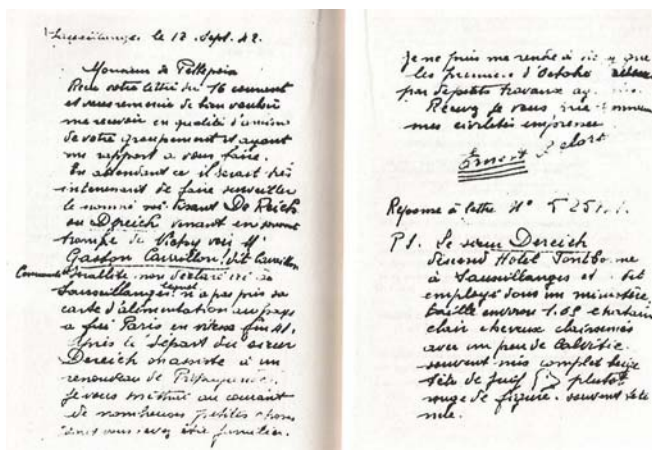 Sauxillanges le 18 Sept. 42.
Monsieur de Pellepoix
Recu votre lettre du 16 courant
et vous remercie de bien vouloir
me recevoir en qualité d'ami
de votre groupement et ayant
un rapport a vous faire.
En attendant ce il serait très
interessant de faire surveiller
le nommé soi-disant De Reich
ou Dereich venant en
trompe de Vichy voir Mr
Gaston Cawillon dit Cawillon
Communiste non déclaré
Sauxillanges lequel n'a pas pris sa
carte d'alimentation au pays
a fui Paris en vitesse fin 41.
après le départ du sieur
Dereich on assiste à un
renouveau de Propagande.
Je vous mettrai au courant
de nombreuses petites choses
dont vous avez été familier.
Je ne puis me rendre à Vichy que
les premiers d'Octobre
par de petits travaux
Recevez je vous prie
mes civilités empressées
Reponse à lettre N° 5251
PS. Le sieur Dereich
descend Hotel
à Sauxillanges et se dit
employé dans un ministère.
taille environ 1.65 chatain
clair cheveux clairsemés
avec un peu de calvitie.
souvent mis complet beige
tête de juif plutôt
rouge de figure. souvent tête
nue.